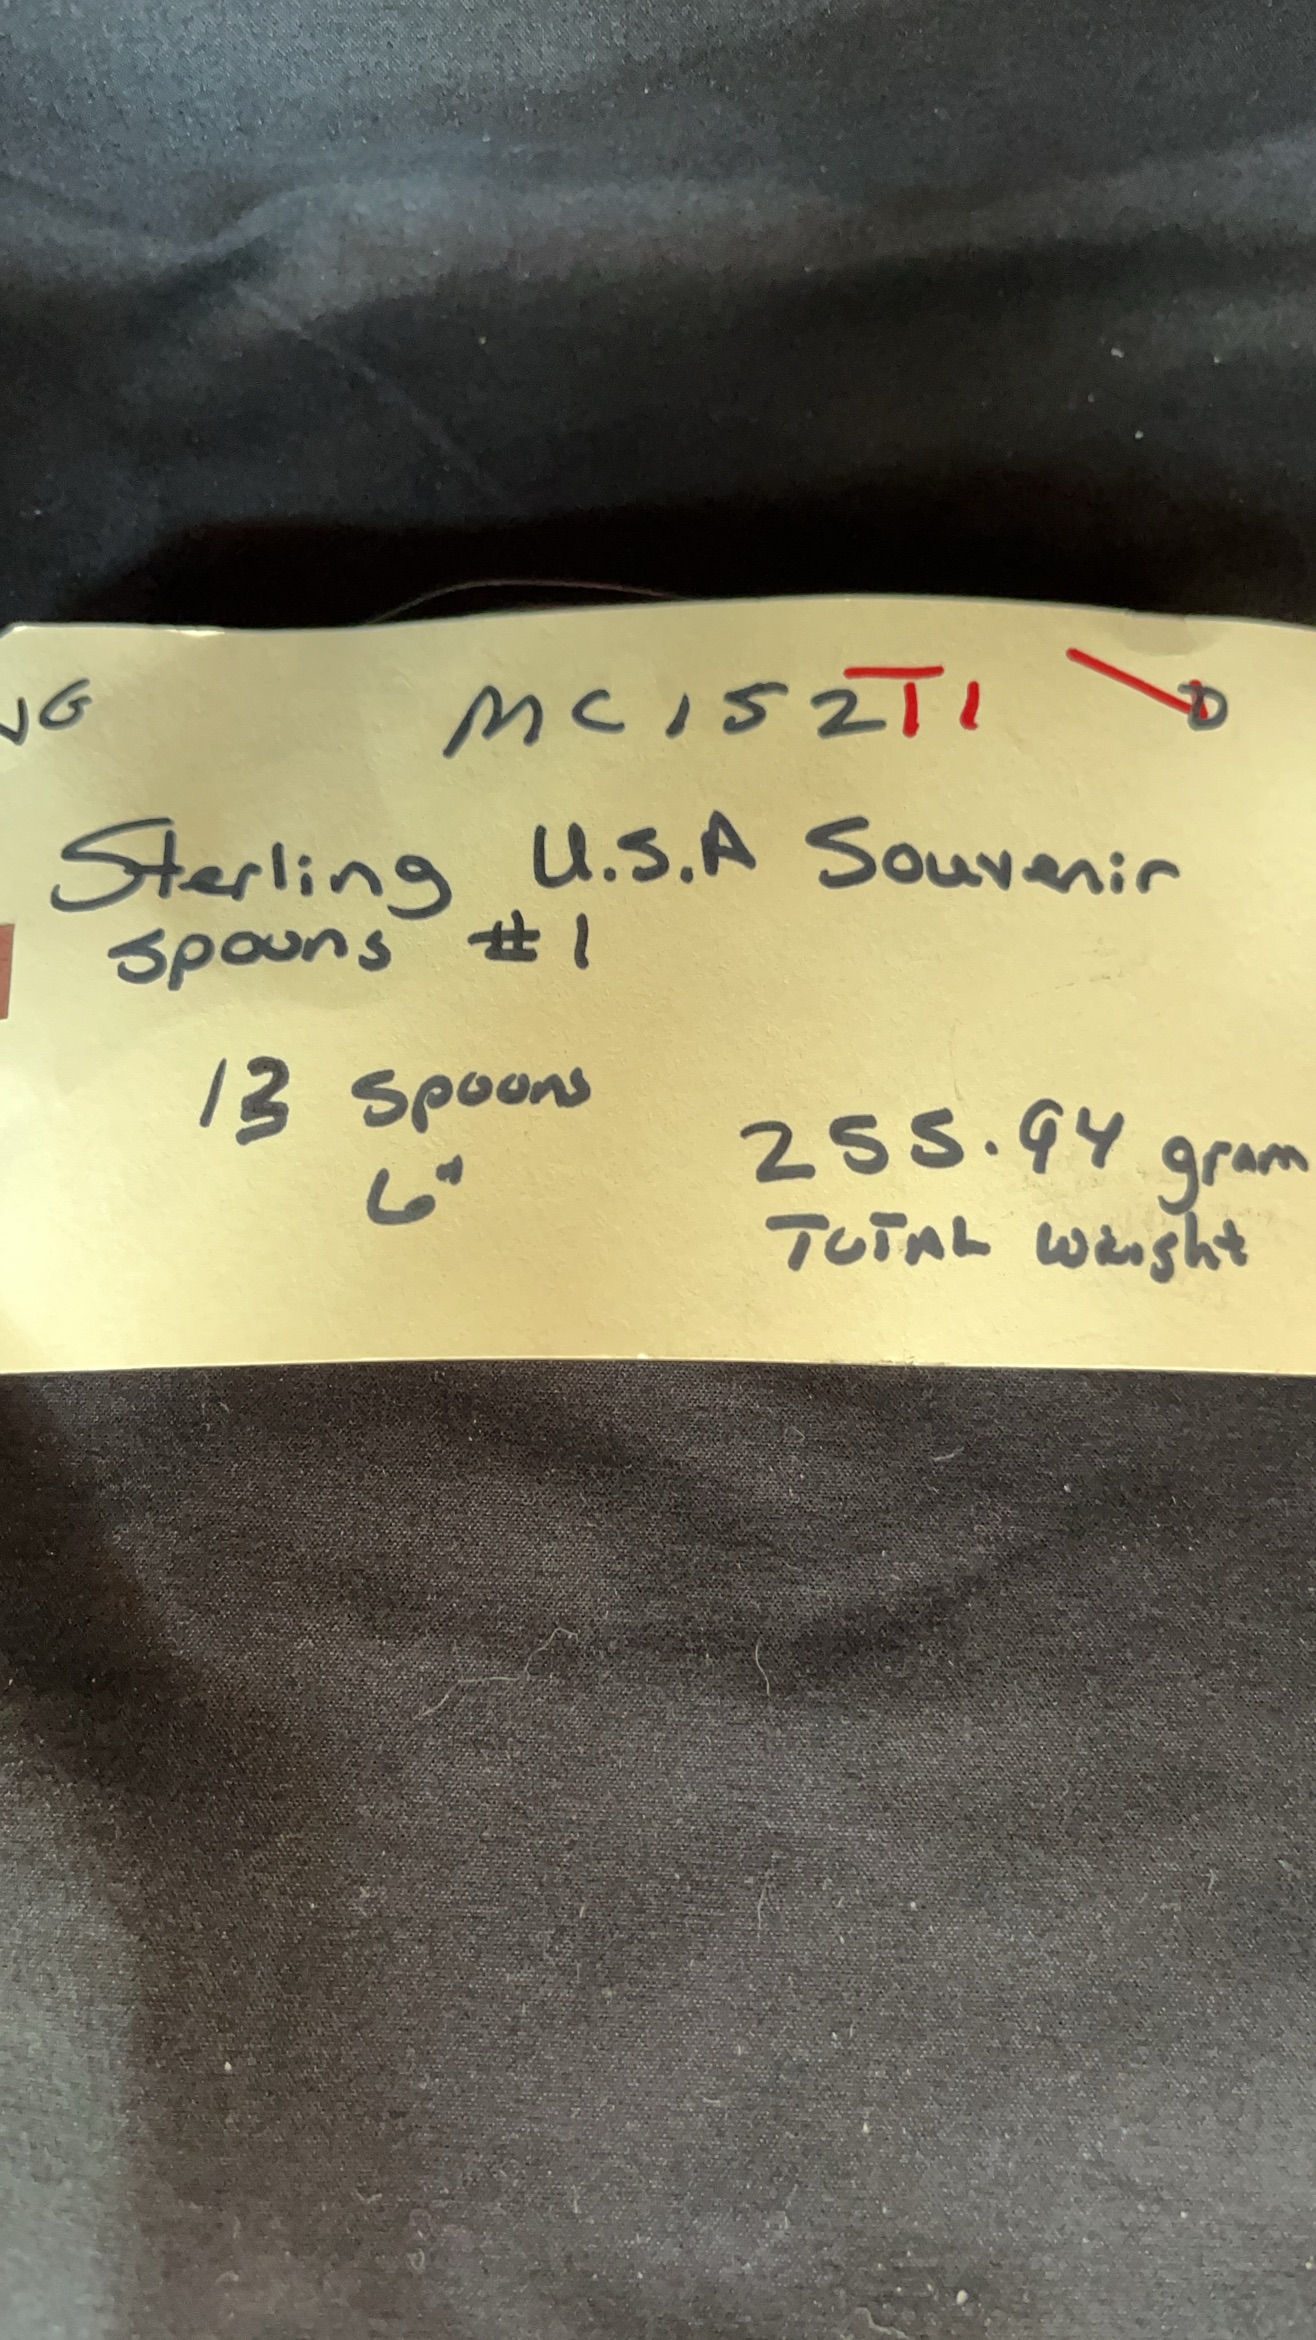 VG MC152T1 D
Sterling U.S.A Souvenir
spoons #1
13 spoons
6"
255.94 gram
TOTAL weight